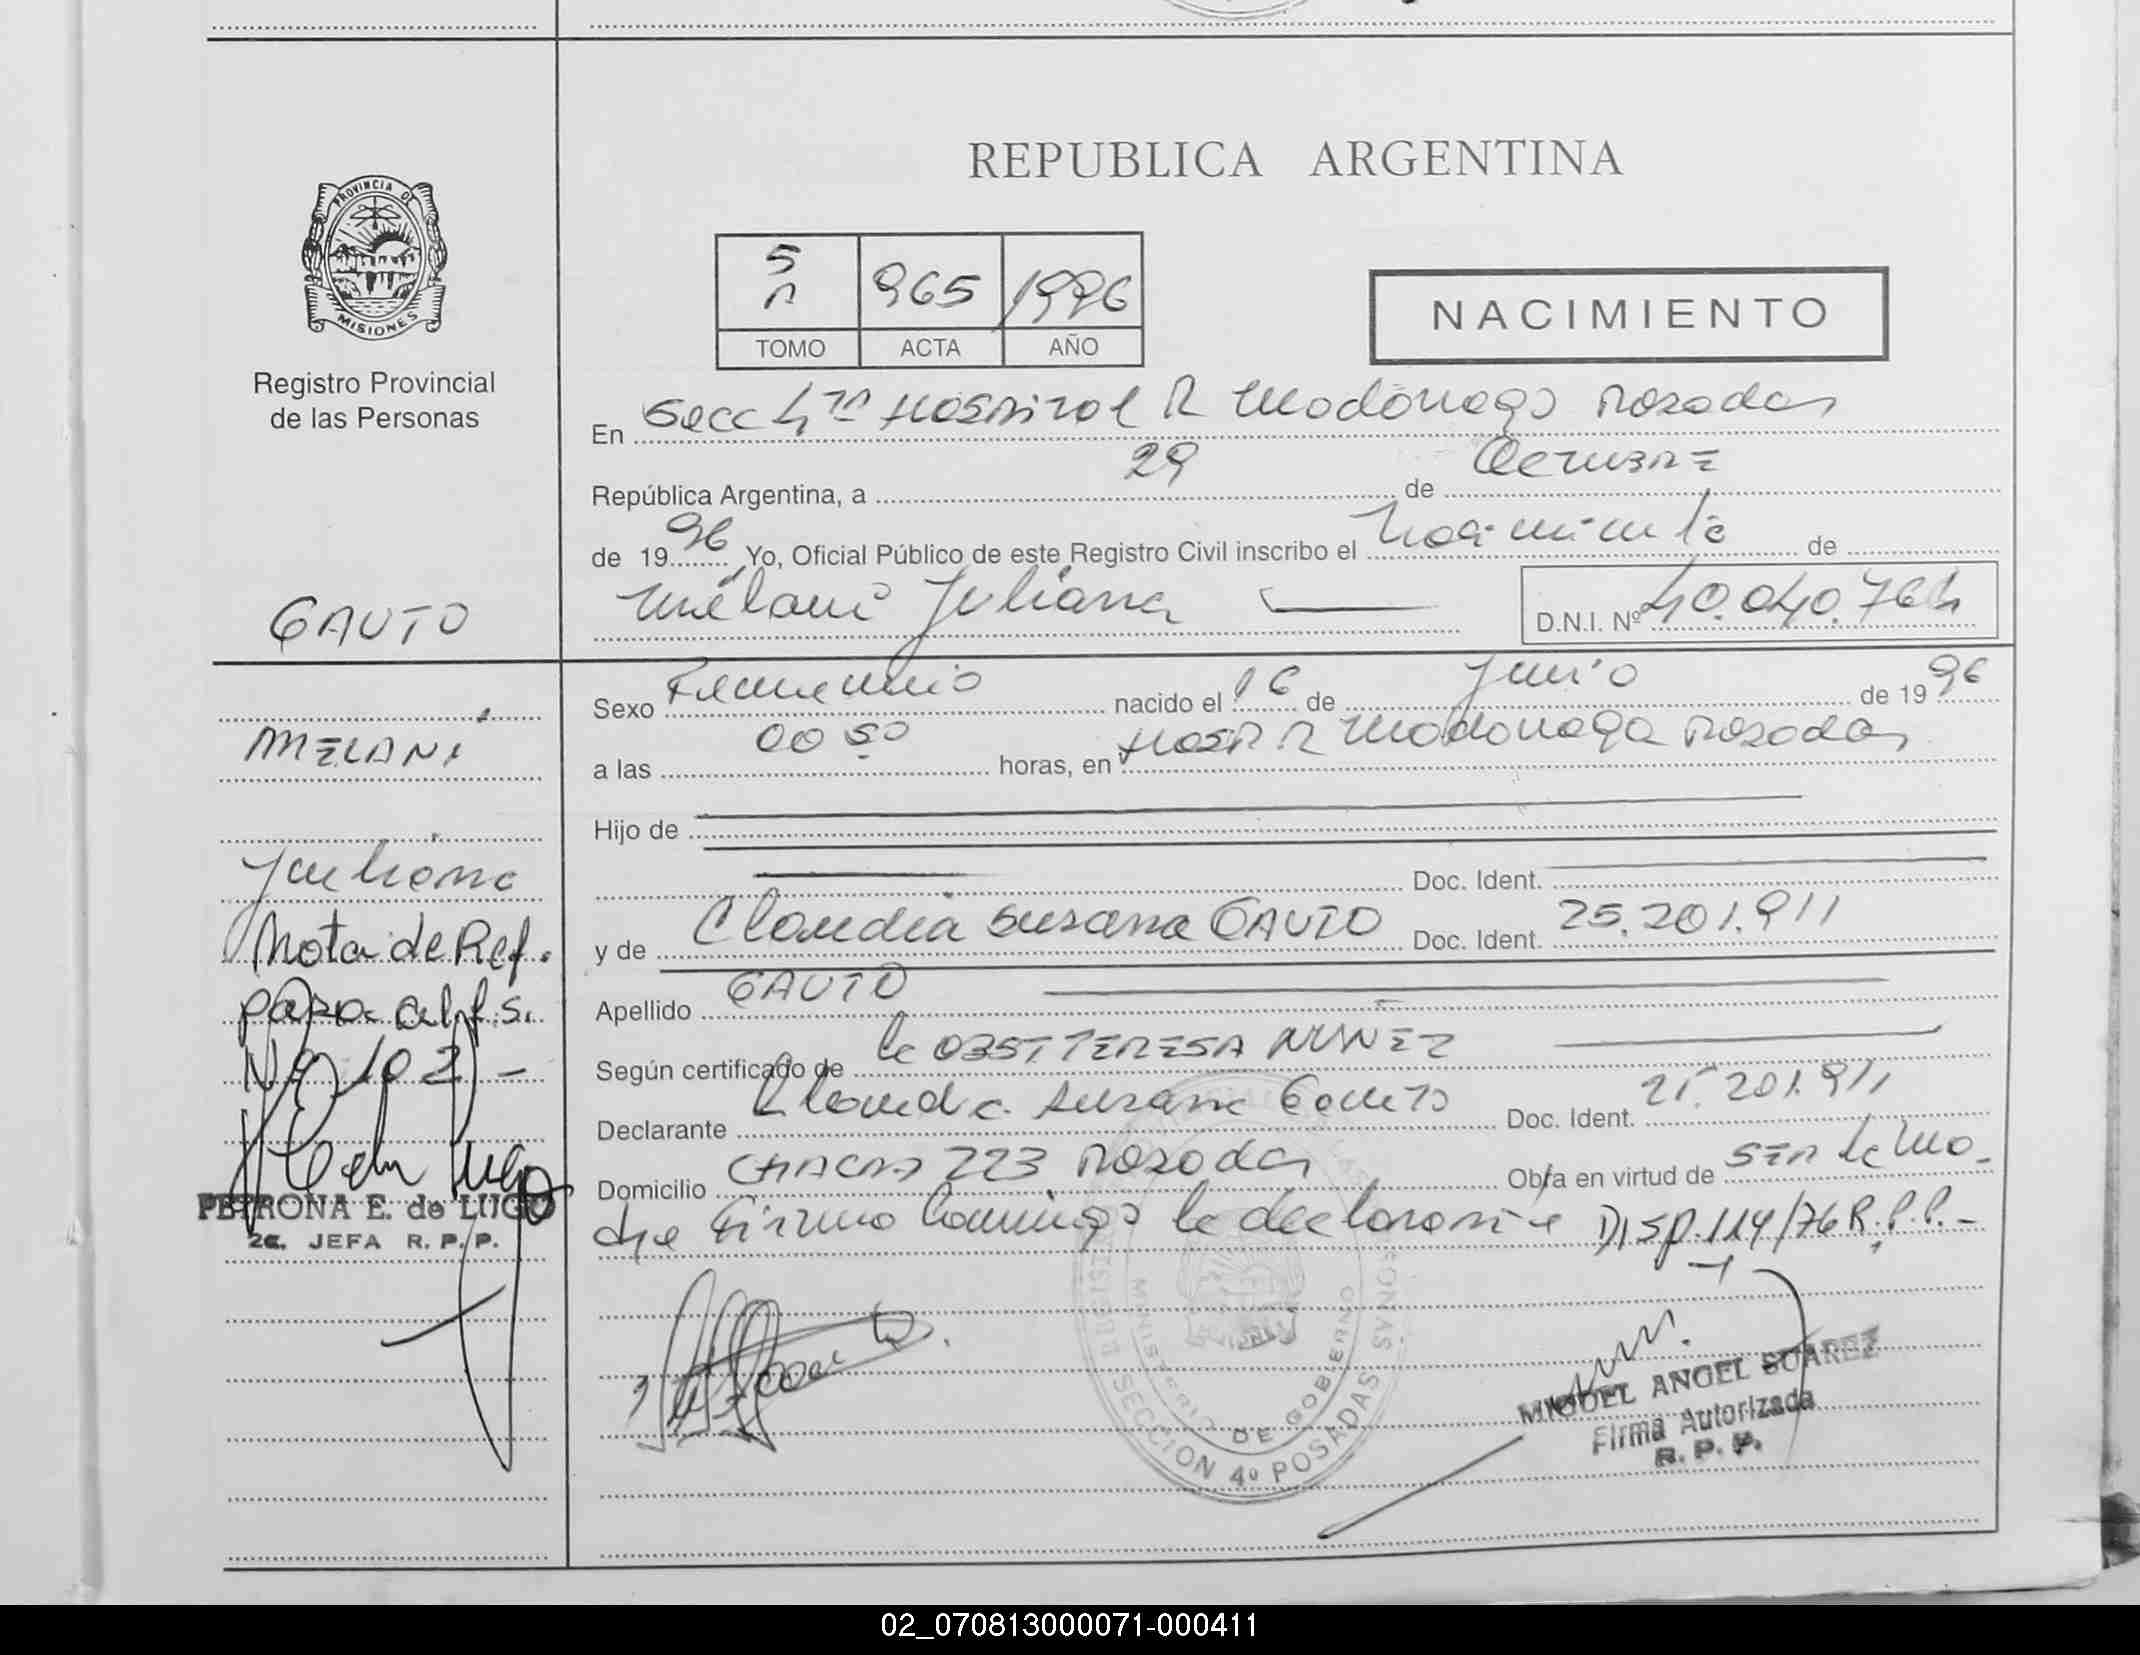 REPUBLICA ARGENTINA
PROVINCIA DE
MISIONES
Registro Provincial
de las Personas
5 965 1996
TOMO ACTA AÑO
NACIMIENTO
En Secc 4ta Hospital R Madariaga Posadas
República Argentina, a 29 de Octubre
de 1996 Yo, Oficial Público de este Registro Civil inscribo el Nacimiento de
Melani Juliana D.N.I. Nº 40.040.764
GAUTO
MELANI
Juliana
Nota de Ref.
para al f.s.
Nº 102 -
PETRONA E. de LUGO
2a. JEFA R. P. P.
Sexo Femenino nacido el 16 de Junio de 1996
a las 00 50 horas, en Hosp R Madariaga Posadas
Hijo de
Doc. Ident.
y de Claudia Susana GAUTO Doc. Ident. 25.201.911
Apellido GAUTO
Según certificado de la OBST TERESA NUÑEZ
Declarante Claudia Susana Gauto Doc. Ident. 25.201.911
Domicilio CHACAS 223 Posadas Obra en virtud de SER la Ma-
dre Firma Conmigo la declarante DISP.114/76 R.P.P.-
MINISTERIO DE GOBIERNO
SECCION 4º POSADAS
MIGUEL ANGEL SUAREZ
Firma Autorizada
R. P. P.
02_070813000071-000411